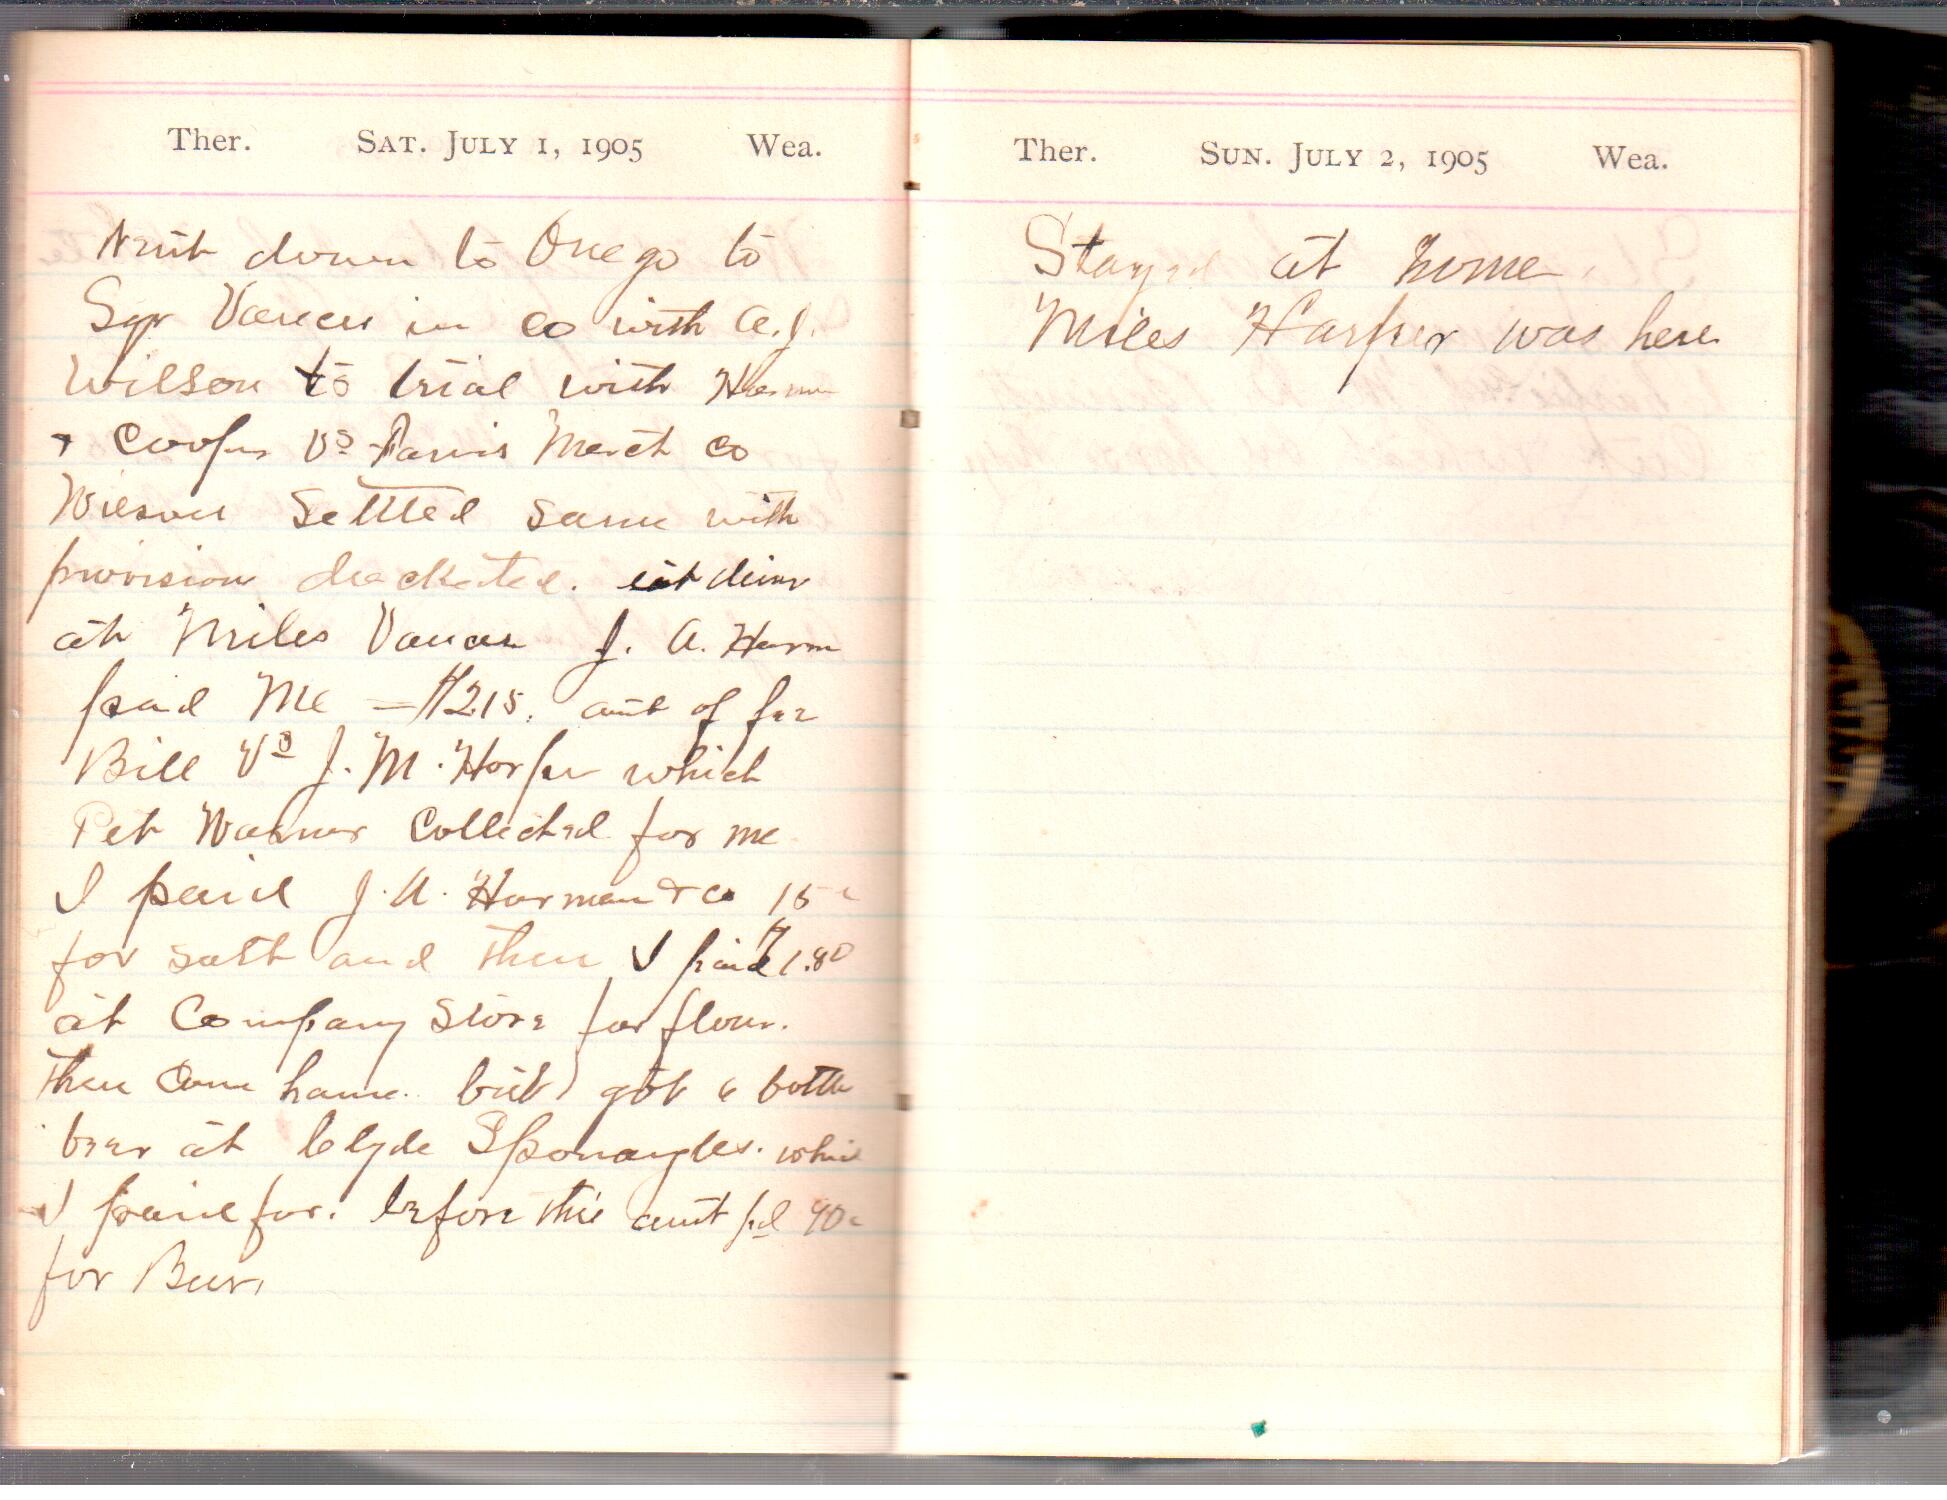 Ther. SAT. JULY 1, 1905 Wea.
Went down to Onego to
Sqr Vances in co with A. J.
Wilson to trial with Harman
& Cooper Vs Parvis Merct co
Wilson Settled same with
provision docketed. eat diner
at Miles Vances J. A. Harm
paid Me = $2.15. amt of fee
Bill Vs J. M. Harper which
Pet Warner Collected for me
I paid J. A. Harman & co 15c
for salt and then I paid $1.80
at Company Store for flour.
Then Come home. but got 6 bottle
beer at Clyde Sponaugles. which
I paid for. before this amt pd 90c
for Beer.
Ther. SUN. JULY 2, 1905 Wea.
Stayed at home.
Miles Harper was here